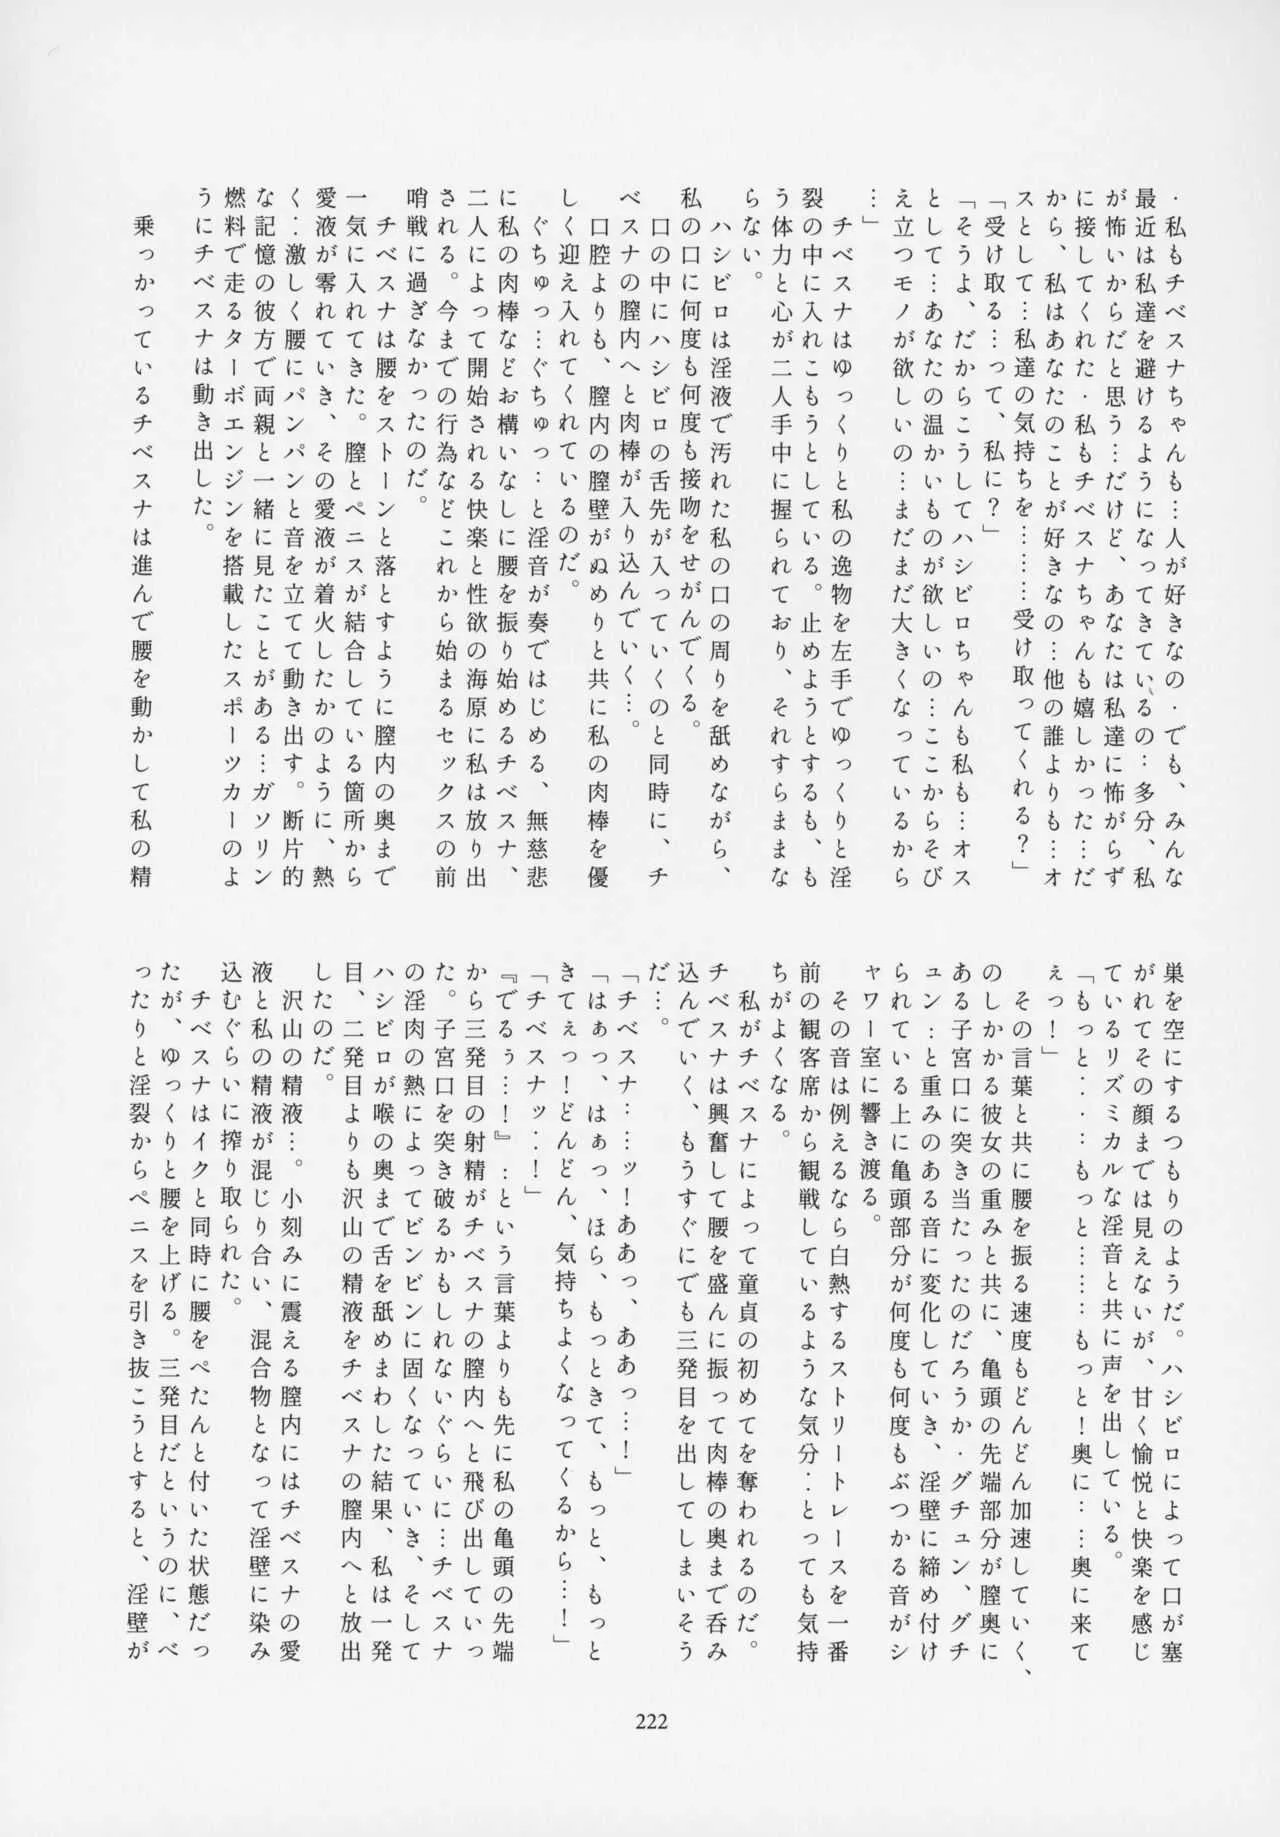 ・私もチベスナちゃんも…人が好きなの・でも、みんな
最近は私達を避けるようになってきているの‥多分、私
が怖いからだと思う…だけど、あなたは私達に怖がらず
に接してくれた・私もチベスナちゃんも嬉しかった…だ
から、私はあなたのことが好きなの…他の誰よりも…オ
スとして…私達の気持ちを………受け取ってくれる？」
「受け取る…って、私に？」
「そうよ、だからこうしてハシビロちゃんも私も…オス
として…あなたの温かいものが欲しいの…ここからそび
え立つモノが欲しいの…まだまだ大きくなっているから
…」
チベスナはゆっくりと私の逸物を左手でゆっくりと淫
裂の中に入れこもうとしている。止めようとするも、も
う体力と心が二人手中に握られており、それすらままな
らない。
ハシビロは淫液で汚れた私の口の周りを舐めながら、
私の口に何度も何度も接吻をせがんでくる。
口の中にハシビロの舌先が入っていくのと同時に、チ
ベスナの膣内へと肉棒が入り込んでいく…。
口腔よりも、膣内の膣壁がぬめりと共に私の肉棒を優
しく迎え入れてくれているのだ。
ぐちゅっ…ぐちゅっ…と淫音が奏ではじめる、無慈悲
に私の肉棒などお構いなしに腰を振り始めるチベスナ、
二人によって開始される快楽と性欲の海原に私は放り出
される。今までの行為などこれから始まるセックスの前
哨戦に過ぎなかったのだ。
チベスナは腰をストーンと落とすように膣内の奥まで
一気に入れてきた。膣とペニスが結合している箇所から
愛液が零れていき、その愛液が着火したかのように、熱
く‥激しく腰にパンパンと音を立てて動き出す。断片的
な記憶の彼方で両親と一緒に見たことがある…ガソリン
燃料で走るターボエンジンを搭載したスポーツカーのよ
うにチベスナは動き出した。
乗っかっているチベスナは進んで腰を動かして私の精
巣を空にするつもりのようだ。ハシビロによって口が塞
がれてその顔までは見えないが、甘く愉悦と快楽を感じ
ているリズミカルな淫音と共に声を出している。
「もっと‥‥もっと……もっと！奥に‥…奥に来て
ぇっ！」
その言葉と共に腰を振る速度もどんどん加速していく、
のしかかる彼女の重みと共に、亀頭の先端部分が膣奥に
ある子宮口に突き当たったのだろうか・グチュン、グチ
ュン‥と重みのある音に変化していき、淫壁に締め付け
られている上に亀頭部分が何度も何度もぶつかる音がシ
ャワー室に響き渡る。
その音は例えるなら白熱するストリートレースを一番
前の観客席から観戦しているような気分‥とっても気持
ちがよくなる。
私がチベスナによって童貞の初めてを奪われるのだ。
チベスナは興奮して腰を盛んに振って肉棒の奥まで呑み
込んでいく、もうすぐにでも三発目を出してしまいそう
だ…。
「チベスナ‥…ッ！ああっ、ああっ…！」
「はぁっ、はぁっ、ほら、もっときて、もっと、もっと
きてぇっ！どんどん、気持ちよくなってくるから…！」
「チベスナッ‥！」
『でるぅ…！』‥という言葉よりも先に私の亀頭の先端
から三発目の射精がチベスナの膣内へと飛び出していっ
た。子宮口を突き破るかもしれないぐらいに…チベスナ
の淫肉の熱によってビンビンに固くなっていき、そして
ハシビロが喉の奥まで舌を舐めまわした結果、私は一発
目、二発目よりも沢山の精液をチベスナの膣内へと放出
したのだ。
沢山の精液…。小刻みに震える膣内にはチベスナの愛
液と私の精液が混じり合い、混合物となって淫壁に染み
込むぐらいに搾り取られた。
チベスナはイクと同時に腰をぺたんと付いた状態だっ
たが、ゆっくりと腰を上げる。三発目だというのに、べ
ったりと淫裂からペニスを引き抜こうとすると、淫壁が
222